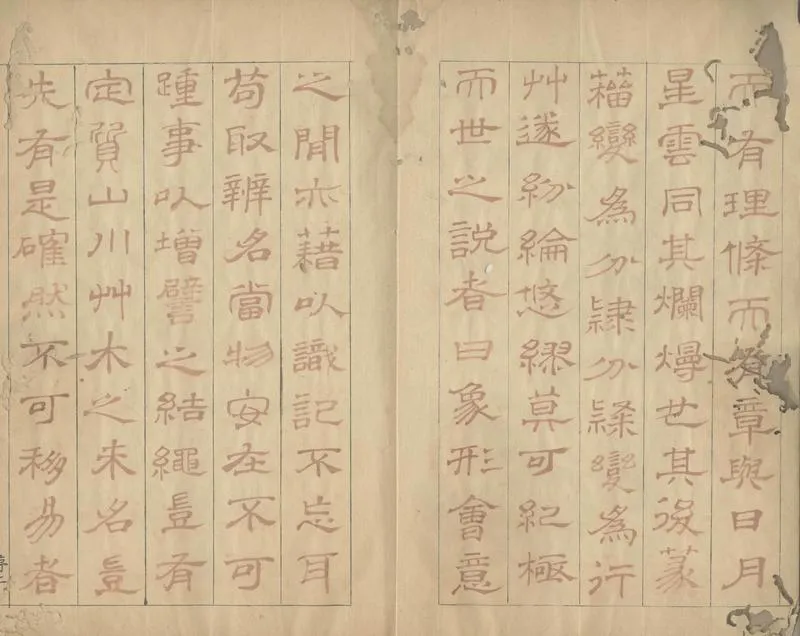 而有理條而有章與日月
星雲同其爛熳也其後篆
籀變為分隸分隸變為行
艸遂紛綸悠繆莫可紀極
而世之說者曰象形會意
之閒亦藉以識記不忘耳
苟取辨名當物安在不可
踵事以增譬之結繩豈有
定質山川艸木之未名豈
先有是確然不可移易者